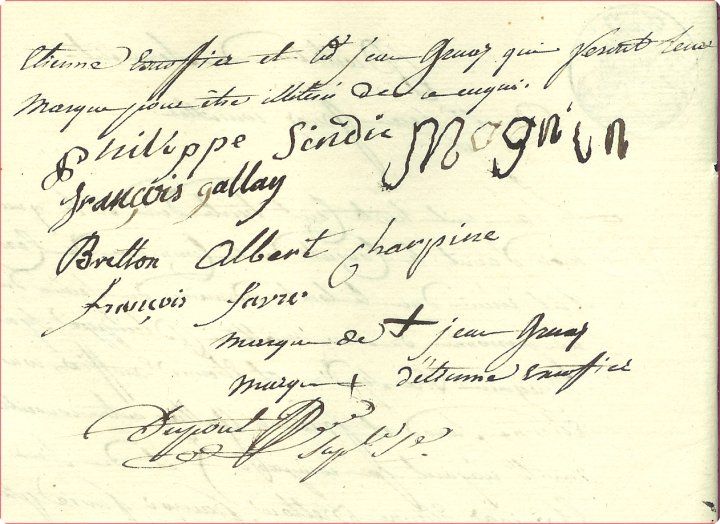 Etienne et jean Gruaz qui feront leur
marque pour être illitéré de ce enquis.
Philippe Sindic Mognin
françois gallay
Bretton Albert Charpine
françois favre
marque de + jean Gruaz
marque + d'étienne
Dupont